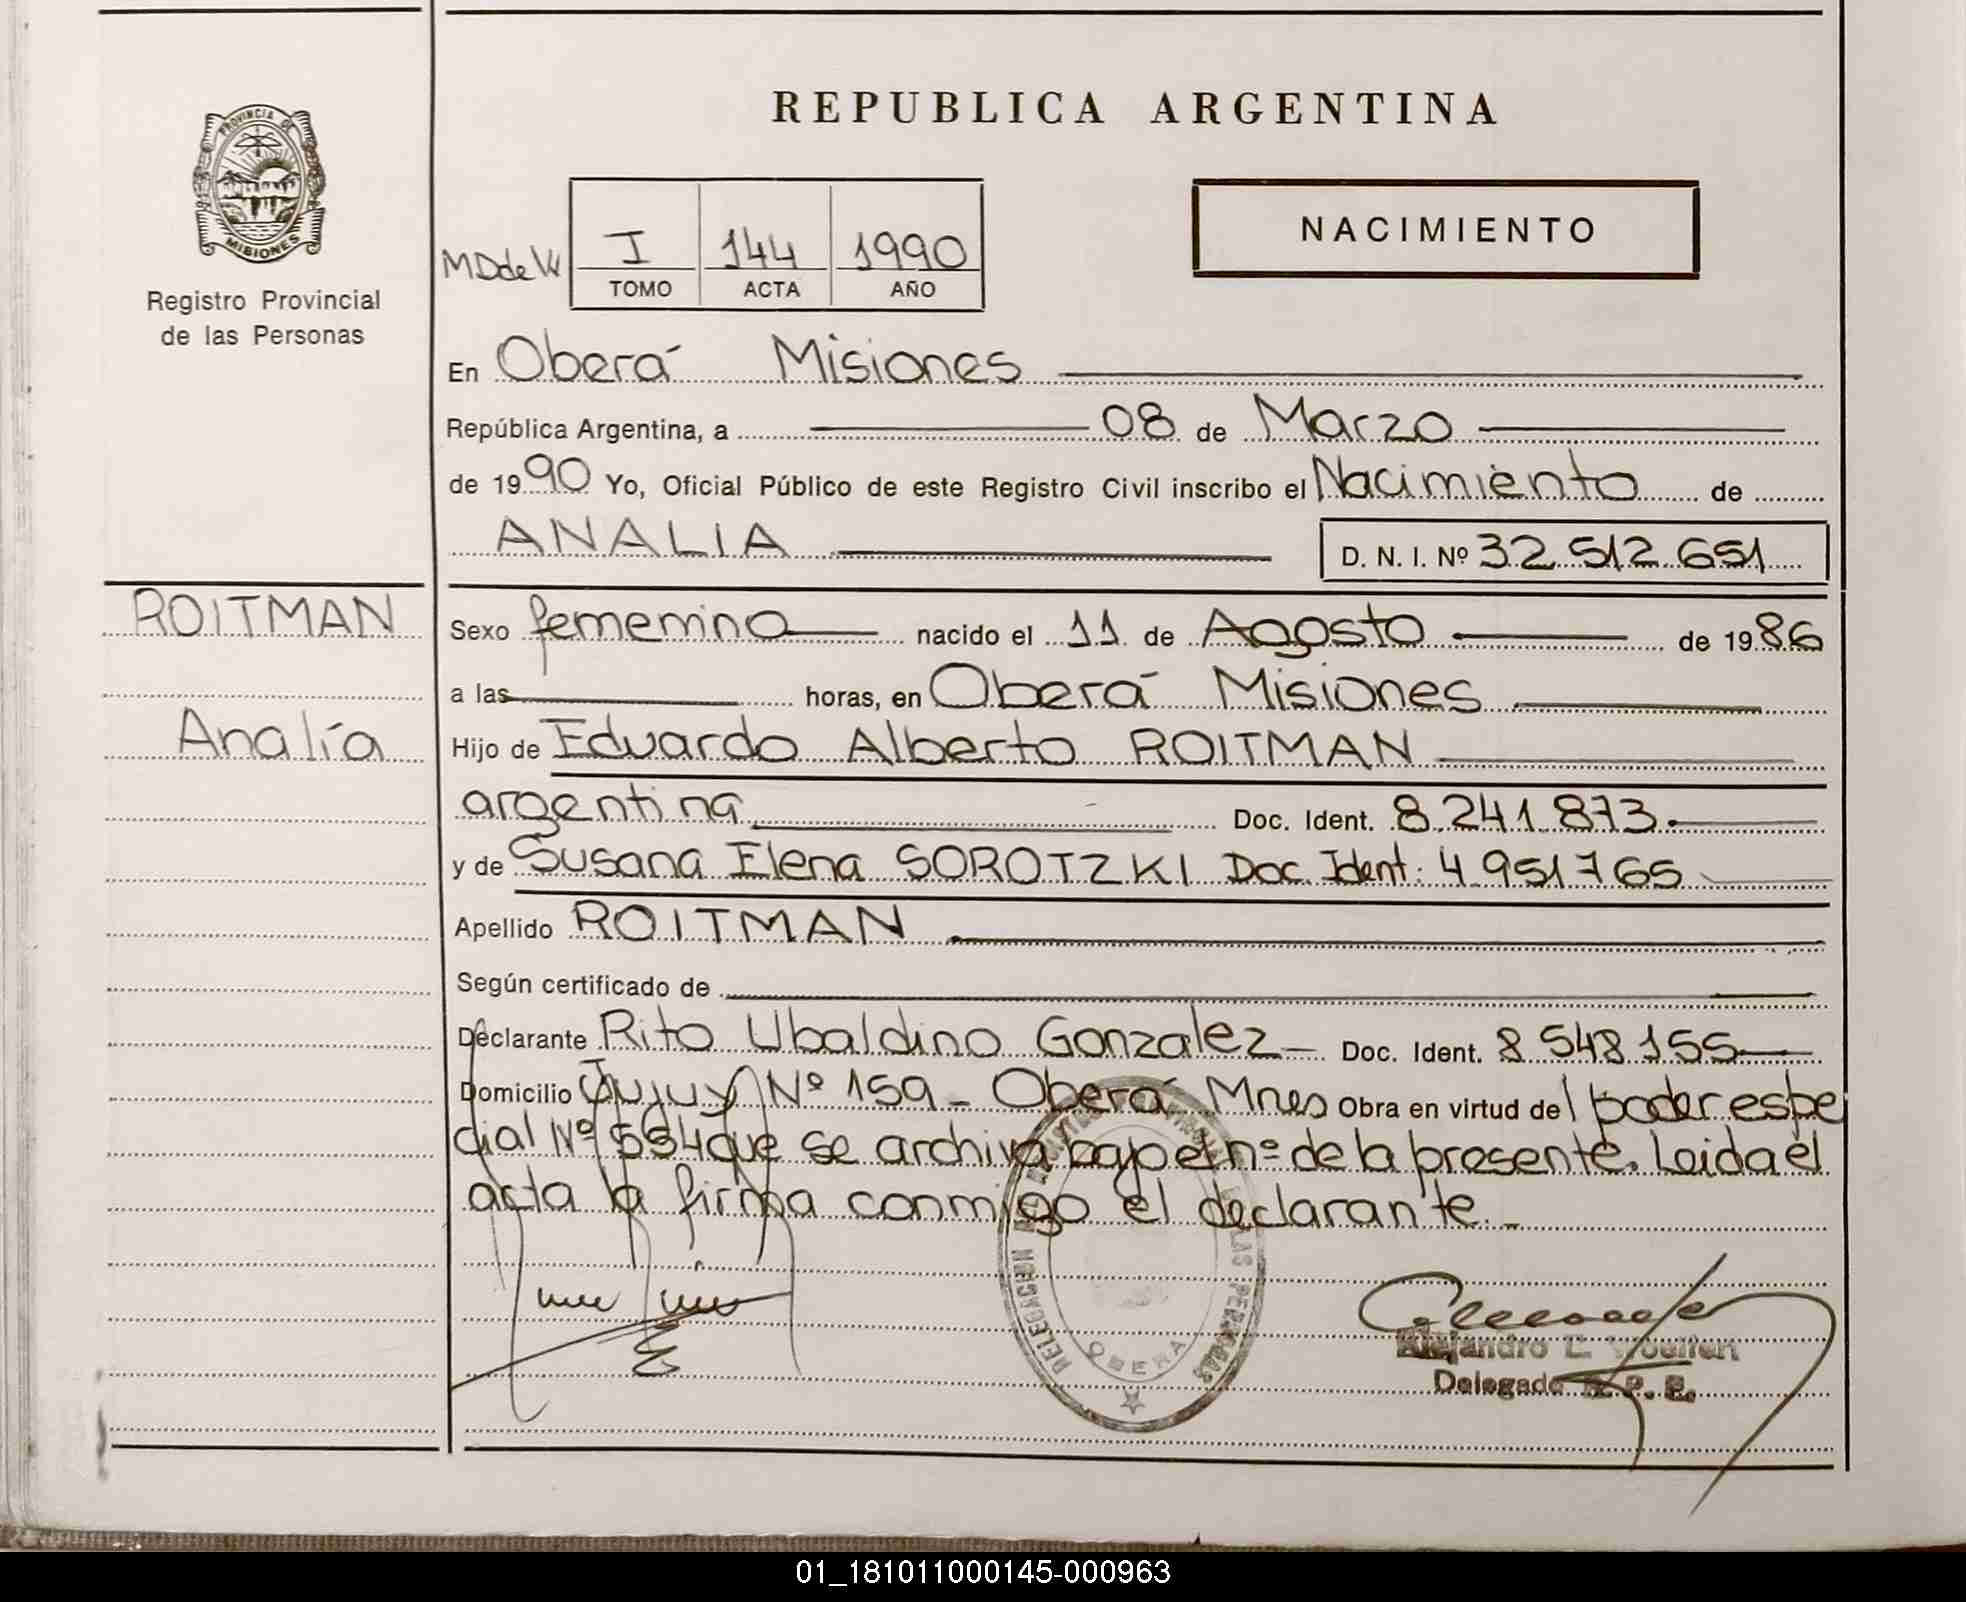 REPUBLICA ARGENTINA
PROVINCIA DE
MISIONES
Registro Provincial
de las Personas
NACIMIENTO
MDdeW
I 144 1990
TOMO ACTA AÑO
En Oberá Misiones
República Argentina, a 08 de Marzo
de 1990 Yo, Oficial Público de este Registro Civil inscribo el Nacimiento de
ANALIA D. N. I. Nº 32.512.651
ROITMAN
Analía
Sexo femenino nacido el 11 de Agosto de 1986
a las horas, en Oberá Misiones
Hijo de Eduardo Alberto ROITMAN
argentina Doc. Ident. 8.241.873.
y de Susana Elena SOROTZKI Doc. Ident: 4 951765
Apellido ROITMAN
Según certificado de
Declarante Rito Ubaldino Gonzalez Doc. Ident. 8 548 155
Domicilio Jujuy Nº 159 - Oberá Mnes Obra en virtud del poder espe
cial Nº 554 que se archiva bajo el nº de la presente. Leida el
acta la firma conmigo el declarante.
DELEGACION LAS PERSONAS
OBERA
Alejandro E.
Delegado R. P. P.
01_181011000145-000963